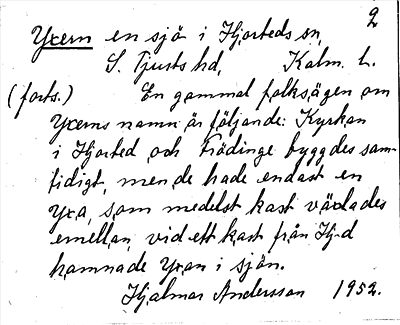 2
Yxern en sjö i Hjorteds sn,
S. Tjusts hd, Kalm. L.
(forts.) En gammal folksägen om
Yxerns namn är följande: Kyrkan
i Hjorted och Frödinge byggdes sam-
tidigt, men de hade endast en
yxa, som medelst kast växlades
emellan, vid ett kast från Hj-d
hamnade Yxan i sjön.
Hjalmar Andersson 1952.